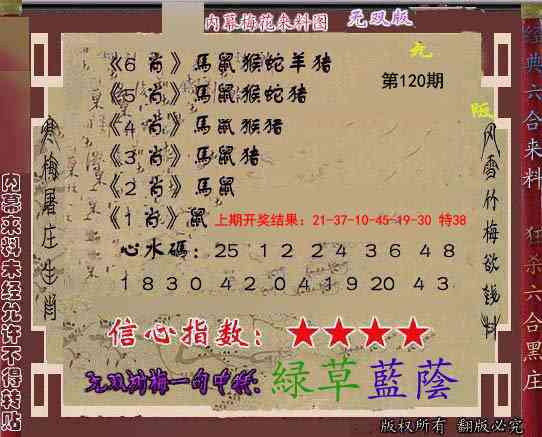 内幕梅花来料图 无双版
《6肖》馬鼠猴蛇羊猪
《5肖》馬鼠猴蛇猪
《4肖》馬鼠猴猪
《3肖》馬鼠猪
《2肖》馬鼠
《1肖》鼠 上期开奖结果：21-37-10-45-19-30 特38
第120期
心水碼：25 12 24 36 48
18 30 42 04 19 20 43
信心指数：★★★★
无双踏梅一句中特：綠草藍蔭
寒梅屠庄生肖
风雪竹梅欲钱料
无
版
内幕来料未经允许不得转贴
经典六合来料 狂杀六合黑庄
版权所有 翻版必究